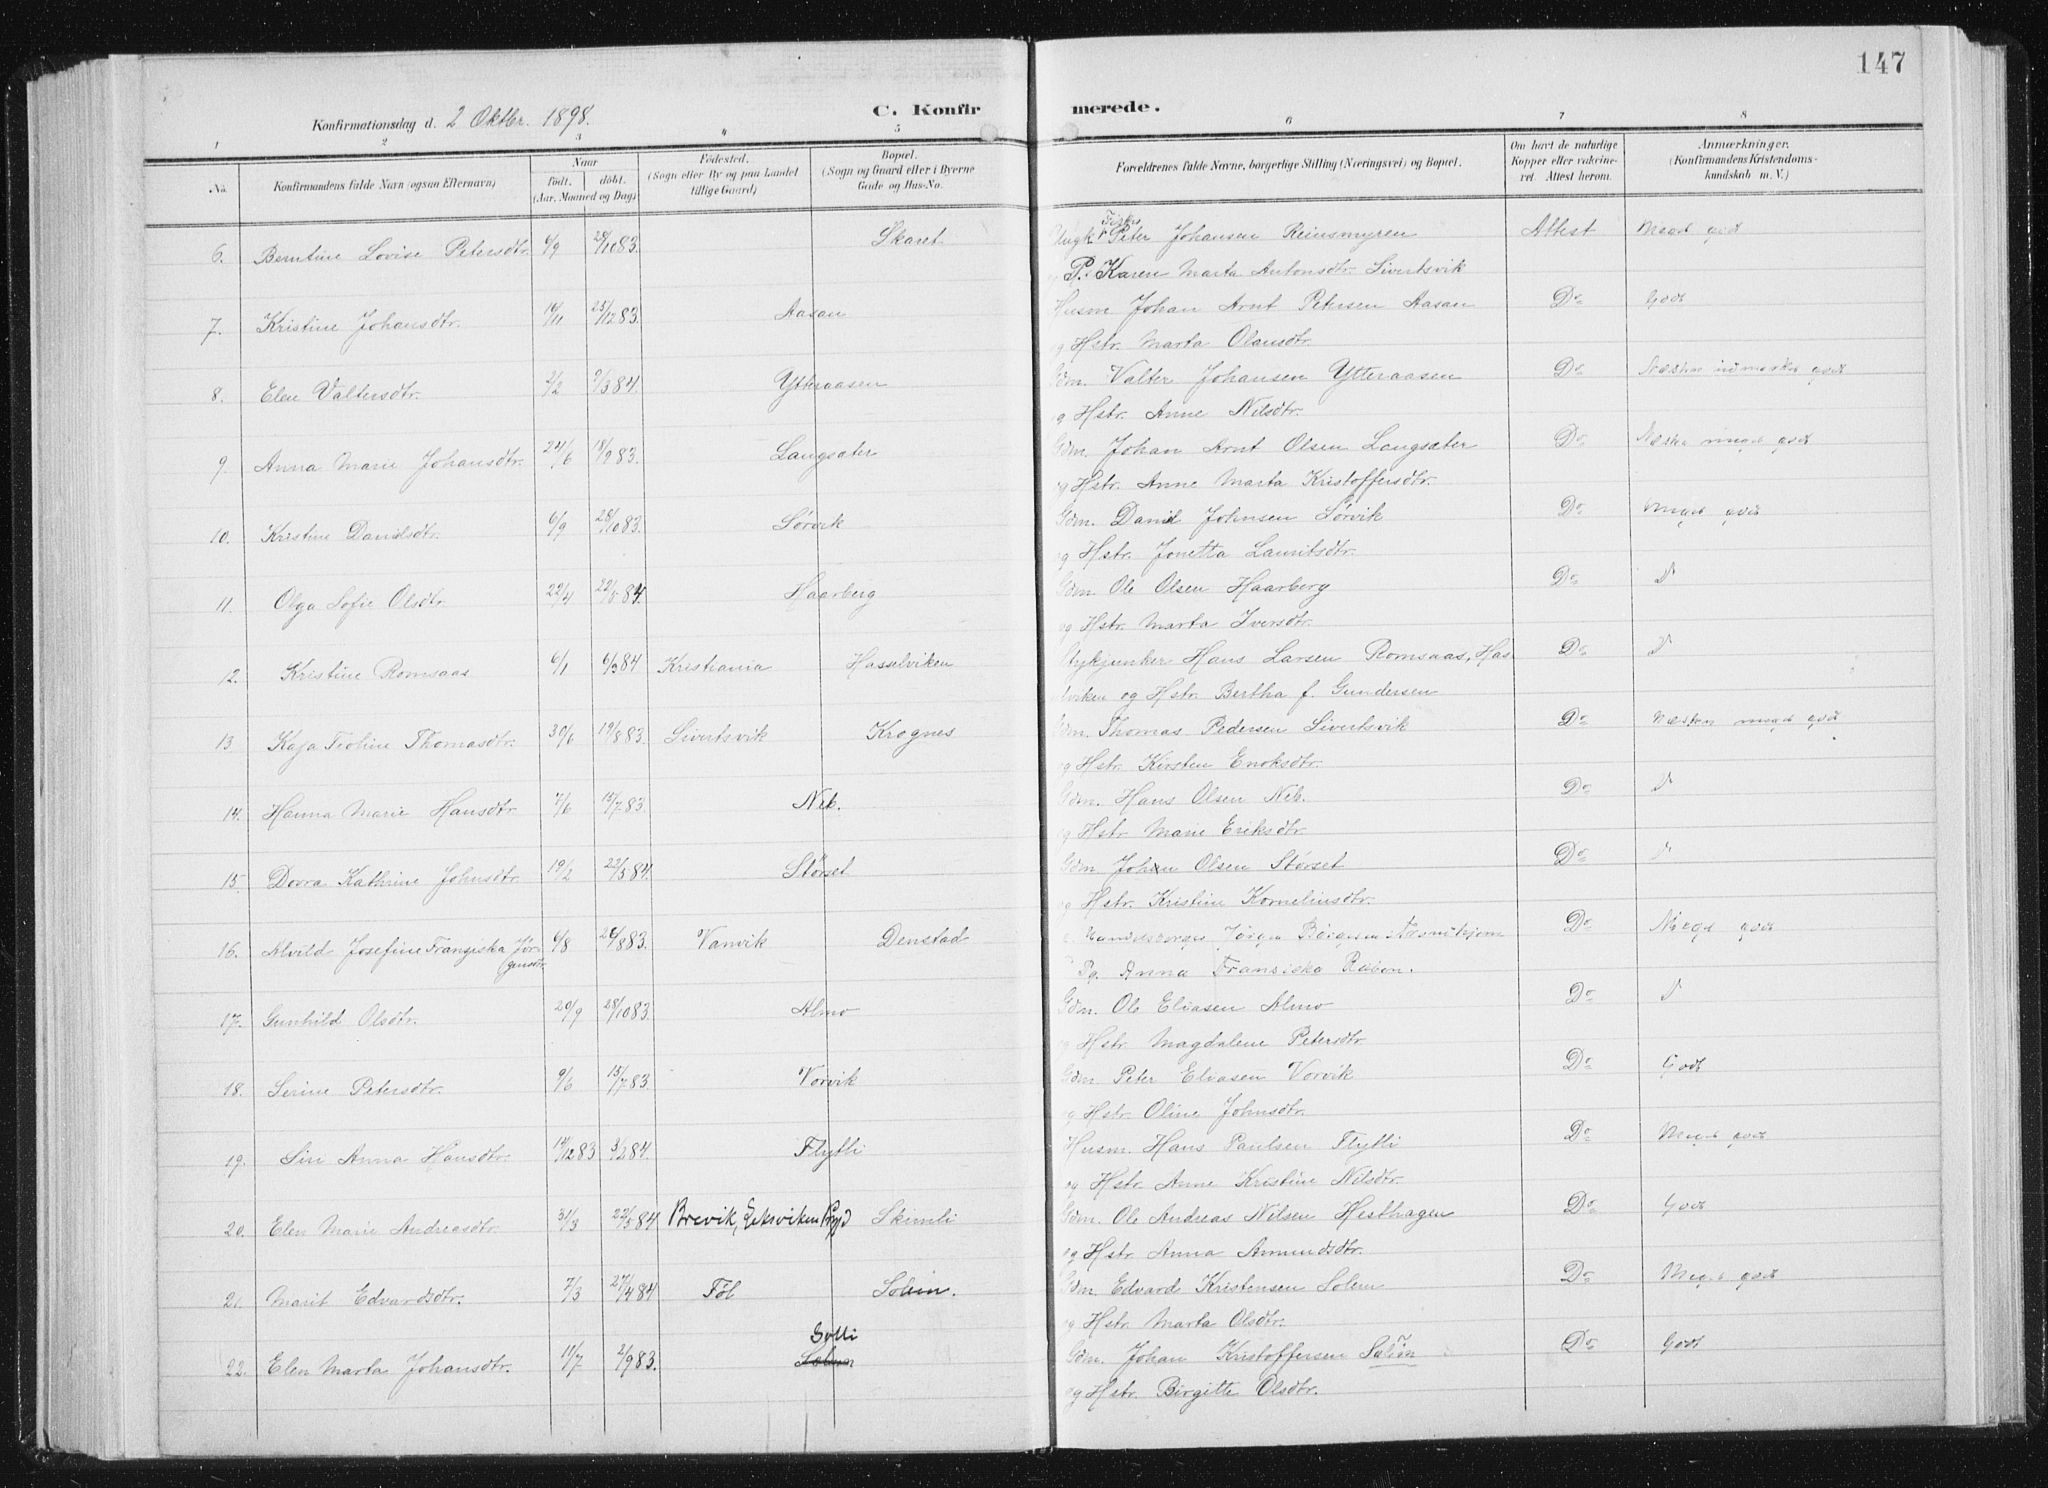 147
Konfirmationsdag d. 2 Oktbr. 1898.
C. Konfir
merede.
1 2 3 4 5 6 7 8
No.
Konfirmandens fulde Navn (ogsaa Efternavn)
Naar
født. døbt.
(Aar, Maaned og Dag)
Fødested.
(Sogn eller By og paa Landet
tillige Gaard)
Bopæl.
(Sogn og Gaard eller i Byerne
Gade og Hus-No.
Forældrenes fulde Navne, borgerlige Stilling (Næringsvei) og Bopæl.
Om havt de naturlige
Kopper eller vakcine-
ret. Attest herom.
Anmærkninger.
(Konfirmandens Kristendoms-
kundskab m. V.)
6. Berntine Lovise Petersdtr. 6/9 28/10 83. Skaret Ungk. Fisker Peter Johansen Reinsmyren Attest Meget godt
og P. Karen Marta Antonsdtr. Sivertsvik
7. Kristine Johansdtr. 16/11 25/12 83. Aasan Husm Johan Arnt Petersen Aasan Do Godt
og Hstr. Marta Olausdtr.
8. Elen Valtersdtr. 2/2 9/3 84. Ytteraasen Gdm. Valter Johansen Ytteraasen Do Næsten udmærket godt
og Hstr. Anne Nilsdtr.
9. Anna Marie Johansdtr. 24/6 18/9 83. Langsæter Gdm. Johan Arnt Olsen Langsæter Do Næsten meget godt
og Hstr. Anne Marta Kristoffersdtr.
10. Kristine Danielsdtr. 6/9 28/10 83. Sørvik Gdm. Daniel Johnsen Sørvik Do Meget godt
og Hstr. Jonetta Lauritsdtr.
11. Olga Sofie Olsdtr. 22/4 22/5 84. Haarberg Gdm. Ole Olsen Haarberg Do D
og Hstr. Marta Iversdtr.
12. Kristine Romsaas 6/1 6/3 84 Kristiania Hasselviken Styrkjunker Hans Larsen Romsaas, Has- Do D
elviken og Hstr. Bertha f. Gundersen
13 Kaja Teoline Thomasdtr. 30/6 19/8 83. Sivertsvik Krognes Gdm. Thomas Pedersen Sivertsvik Do Næsten meget godt
og Hstr. Kirsten Enoksdtr.
14. Hanna Marie Hansdtr 7/6 15/7 83. Neb. Gdm. Hans Olsen Neb. Do D
og Hstr. Marie Eriksdtr
15 Dovra Kathrine Johnsdtr 19/2 22/5 84. Størset Gdm. John Olsen Størset Do D
og Hstr. Kristine Korneliusdtr.
16. Alvild Josefine Franziska Jør- 6/8 26/8 83. Vanvik Denstad Jørgen Do Meget godt
gensdtr. Pg. Anna Fransiska
17. Gunhild Olsdtr. 20/9 28/10 83. Almo Gdm. Ole Eliasen Almo Do D
og Hstr. Magdalene Petersdtr
18. Serine Petersdtr. 9/6 15/7 83. Vorvik Gdm. Peter Eliasen Vorvik Do Godt
og Hstr. Oline Johnsdtr.
19. Siri Anna Hansdtr. 14/12 83 3/2 84. Flytli Husm. Hans Paulsen Flytli Do Meget godt
og Hstr. Anne Kristine Nilsdtr.
20. Elen Marie Andreasdtr. 31/3 22/5 84 Brevik, Leksviken Prgjd Skimli Gdm. Ole Andreas Nilsen Hesthagen Do Godt
og Hstr. Anna Amundsdtr.
21. Marit Edvardsdtr. 7/3 27/4 84 Føl Solem. Gdm. Edvard Kristensen Solem Do Meget godt
og Hstr. Marta Olsdtr.
Solli
22. Elen Marta Johansdtr. 11/7 2/9 83. Solem Gdm. Johan Kristoffersen Do Godt
og Hstr. Birgitte Olsdtr.